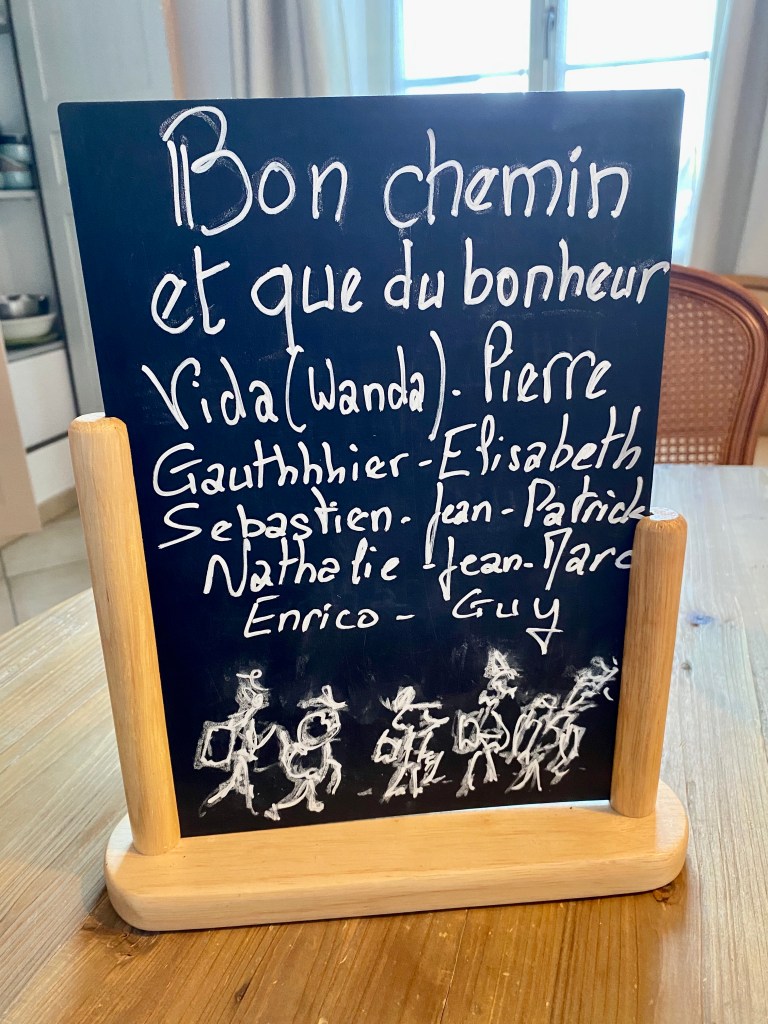 Bon chemin
et que du bonheur
Vida (Wanda). Pierre
Gauthhhier - Elisabeth
Sebastien - Jean - Patrick
Nathalie - Jean-Marc
Enrico - Guy